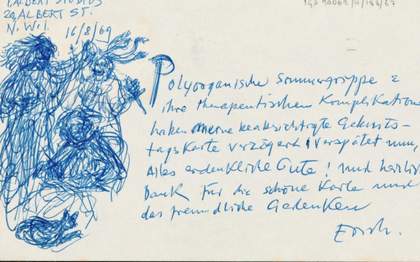 TALBERT STUDIOS
29 ALBERT ST.
N.W.1.
16/8/69
Polyorganische Sommergrippe &
ihre therapeutischen Komplikationen
haben meine beabsichtigte Geburts-
tagskarte verzögert, verspätet nun,
Alles erdenkliche Gute! und herzlich
Dank für die schöne Karte und
das freundliche Gedenken